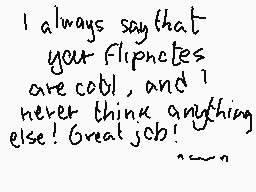 I always say that
your flipnotes
are cool, and I
never think anything
else! Great job!